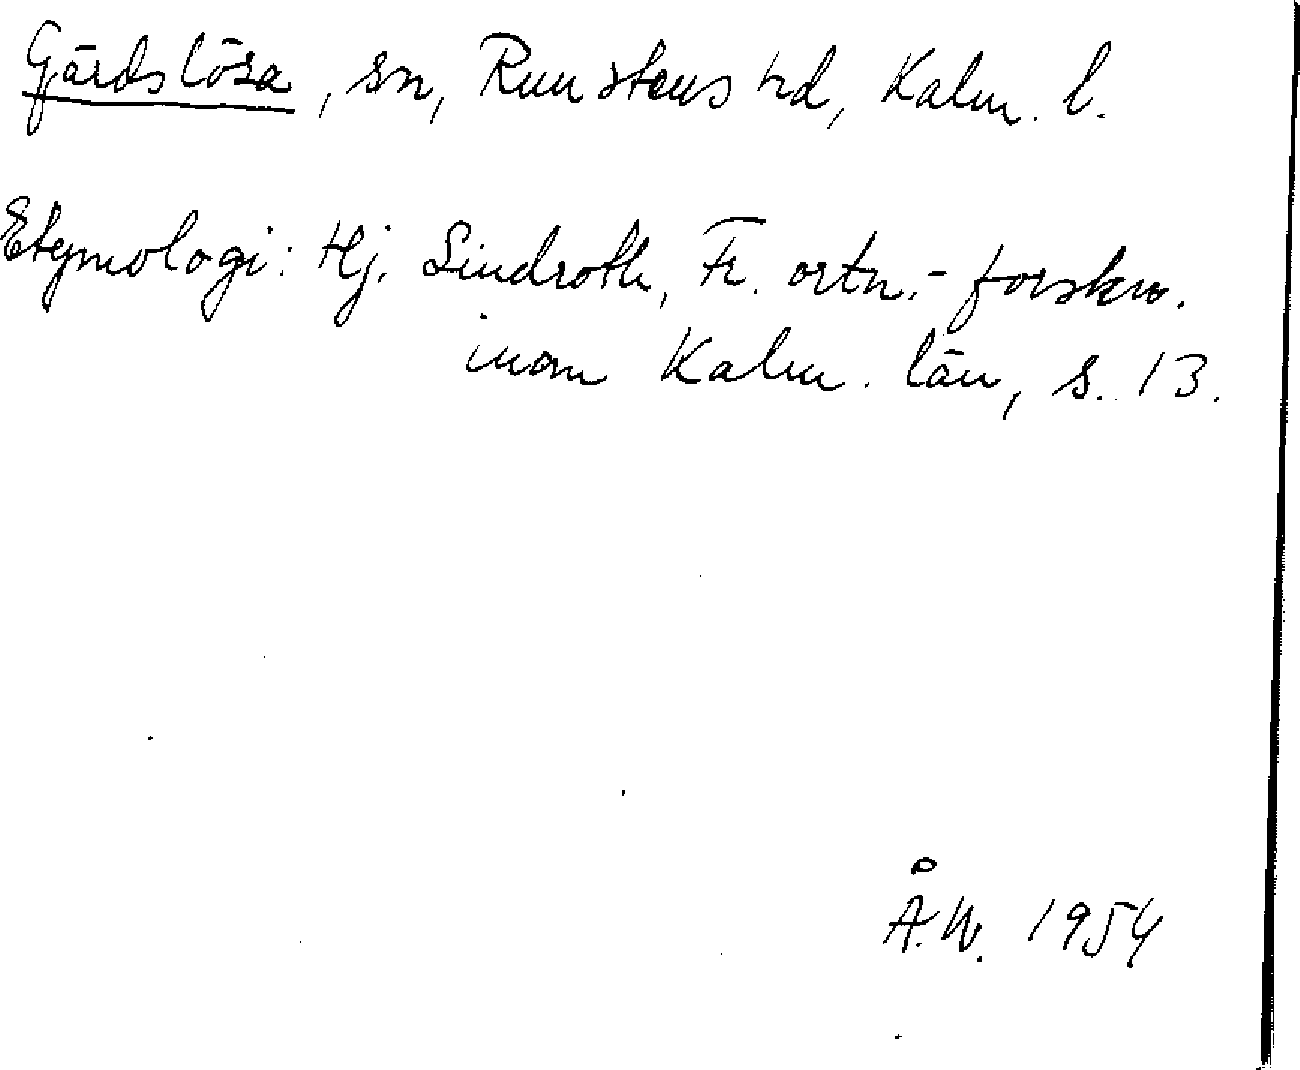 Gärdslösa, sn, Runstens hd, Kalm. l.
Etymologi: Hj. Lindroth, Fr. ortn.-forskn.
inom Kalm. län, s. 13.
Å.W. 1954